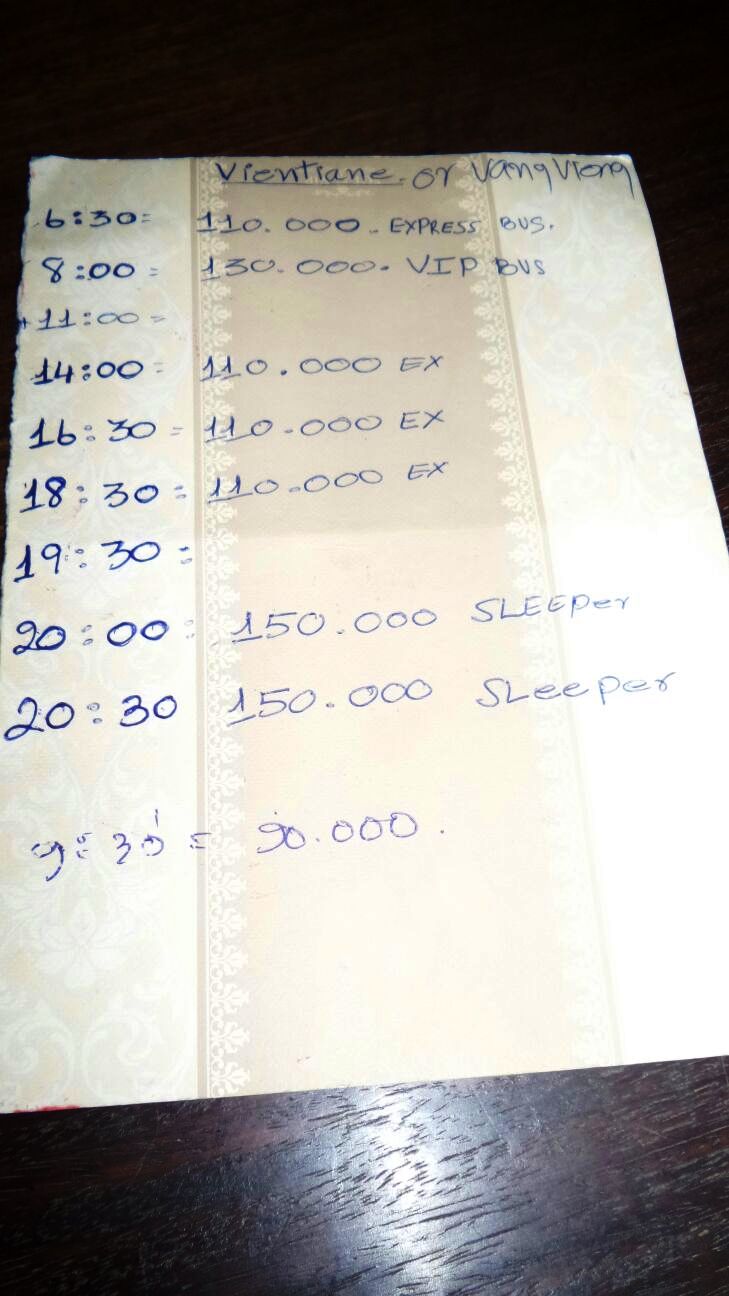 Vientiane. or Vang Vieng
6:30= 110.000. EXPRESS BUS.
8:00= 130.000. VIP BUS
+11:00=
14:00= 110.000 EX
16:30= 110.000 EX
18:30= 110.000 EX
19:30=
20:00= 150.000 SLEEPer
20:30 150.000 SLeeper
9:30= 90.000.